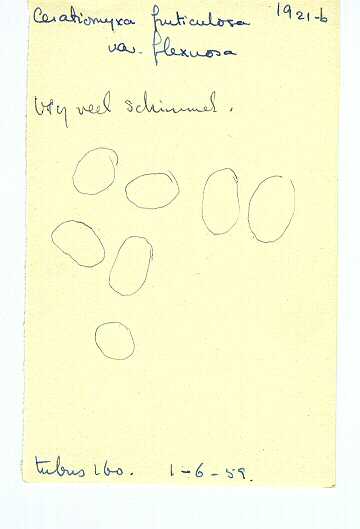 Ceratiomyxa fruticulosa 1921-b
var. flexuosa
Vrij veel schimmel.
tubus 160. 1-6-59.